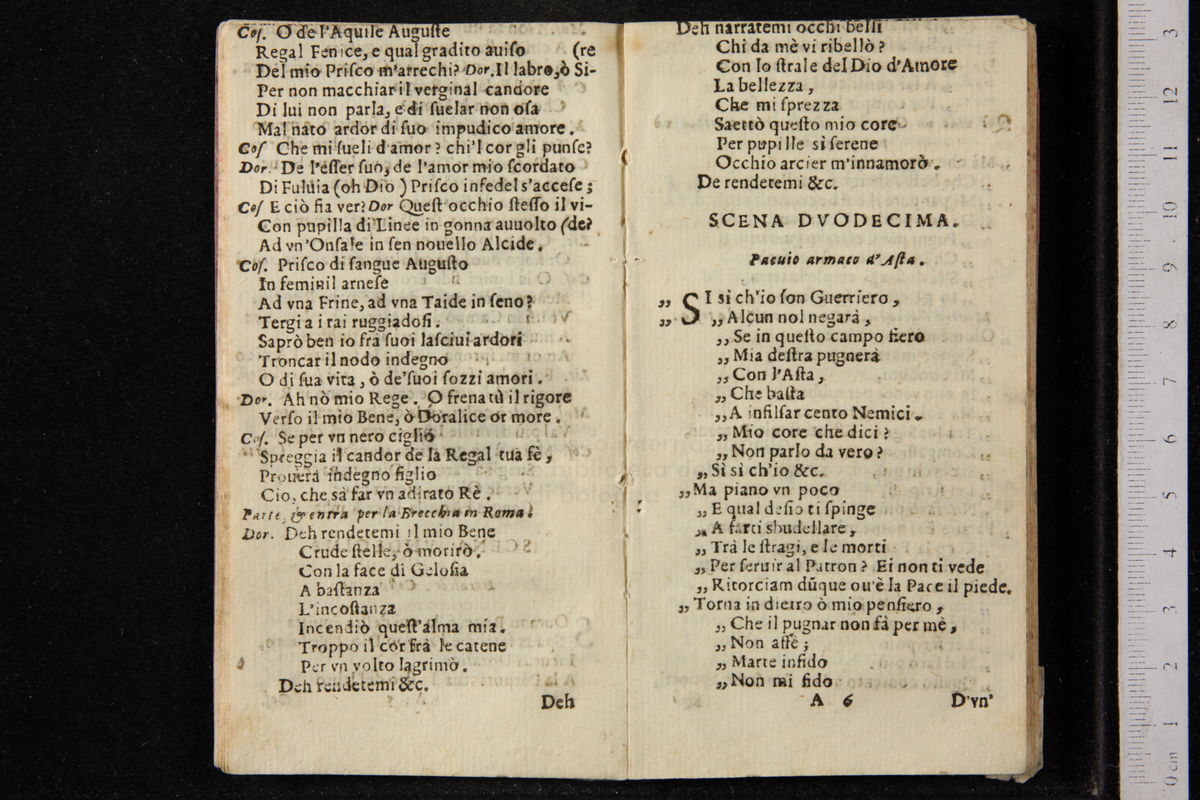 Coſ. O de l'Aquile Auguſte
Regal Fenice, e qual gradito auiſo (re
Del mio Priſco m'arrechi? Dor. Il labro, ò Si-
Per non macchiar il verginal candore
Di lui non parla, e di ſuelar non oſa
Mal nato ardor di ſuo impudico amore.
Coſ Che mi ſueli d'amor? chi'l cor gli punſe?
Dor. De l'eſſer ſuo, de l'amor mio ſcordato
Di Fuluia (oh Dio) Priſco infedel s'acceſe;
Coſ E ciò fia ver? Dor Queſt occhio ſteſſo il vi-
Con pupilla di Linee in gonna auuolto (de?
Ad vn'Onfale in ſen nouello Alcide.
Coſ. Priſco di ſangue Auguſto
In feminil arneſe
Ad vna Frine, ad vna Taide in ſeno?
Tergi a i rai ruggiadoſi.
Saprò ben io frà ſuoi laſciui ardori
Troncar il nodo indegno
O di ſua vita, ò de'ſuoi ſozzi amori.
Dor. Ah nò mio Rege. O frena tù il rigore
Verſo il mio Bene, ò Doralice or more.
Coſ. Se per vn nero ciglio
Spreggia il candor de la Regal tua fè,
Prouerà indegno figlio
Cio, che sà far vn adirato Rè.
Parte, & entra per la Brecchia in Roma.
Dor. Deh rendetemi il mio Bene
Crude ſtelle, ò morirò.
Con la face di Geloſia
A baſtanza
L'incoſtanza
Incendiò queſt'alma mia.
Troppo il cor frà le catene
Per vn volto lagrimò.
Deh rendetemi &c.
Deh
Deh narratemi occhi belli
Chi da mè vi ribellò?
Con lo ſtrale del Dio d'Amore
La bellezza,
Che mi ſprezza
Saettò queſto mio core
Per pupille sì ſerene
Occhio arcier m'innamorò.
De rendetemi &c.
SCENA DVODECIMA.
Pacuio armato d'Aſta.
„ SI sì ch'io ſon Guerriero,
„ „ Alcun nol negarà,
„ Se in queſto campo fiero
„ Mia deſtra pugnerà
„ Con l'Aſta,
„ Che baſta
„ A infilſar cento Nemici.
„ Mio core che dici?
„ Non parlo da vero?
„ Sì sì ch'io &c.
„ Ma piano vn poco
„ E qual deſio ti ſpinge
„ A farti sbudellare,
„ Trà le ſtragi, e le morti
„ Per ſeruir al Patron? Ei non ti vede
„ Ritorciam dũque ou'è la Pace il piede.
„ Torna in dietro ò mio penſiero,
„ Che il pugnar non fà per mè,
„ Non affè;
„ Marte infido
„ Non mi fido
A 6 D'vn'